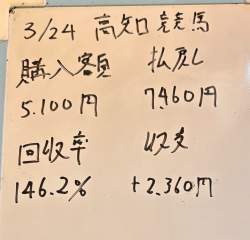 3/24 高知競馬
購入額 払戻し
5.100円 7.460円
回収率 収支
146.2% +2.360円